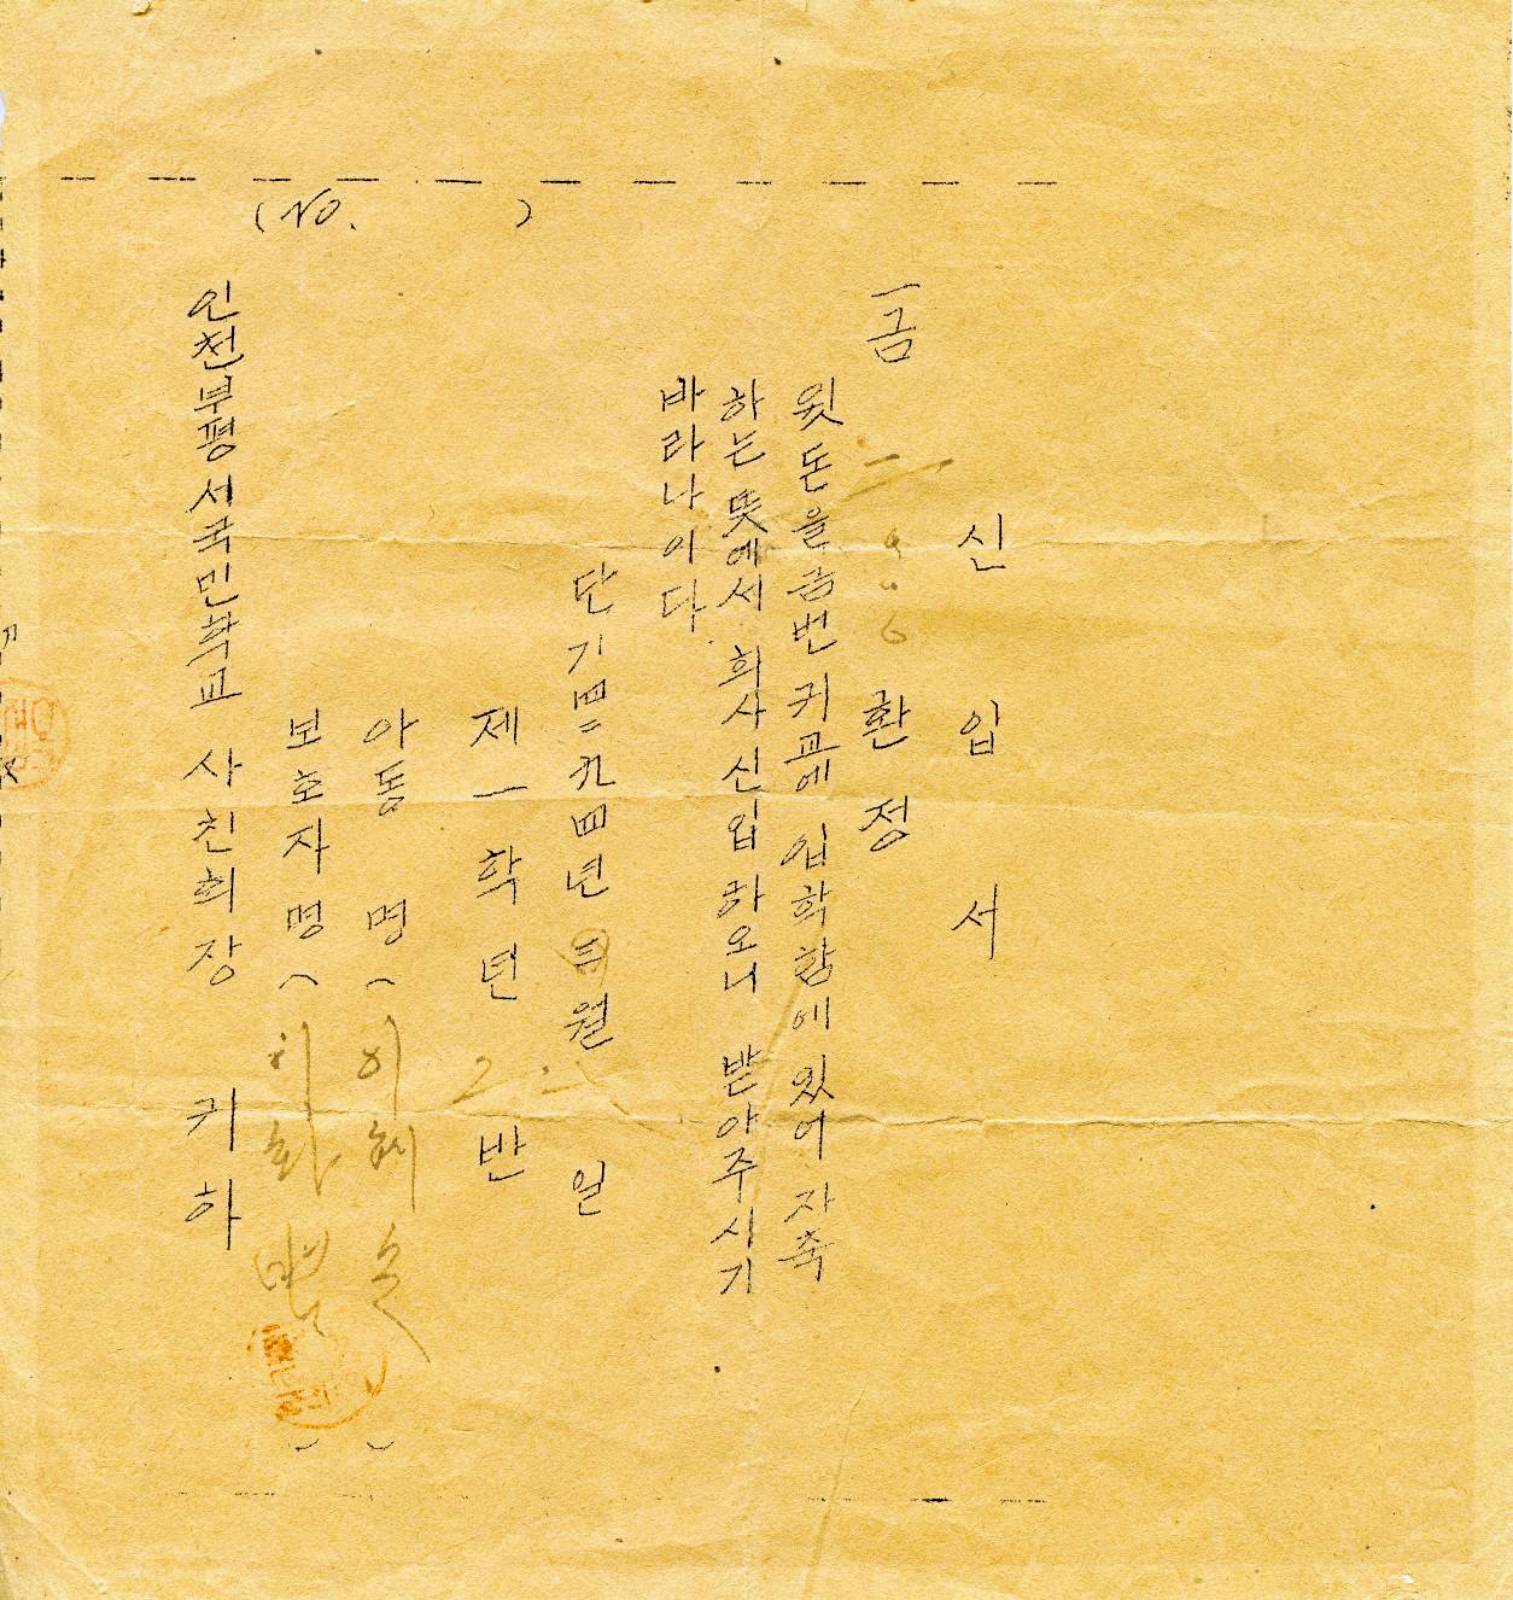 신입서
一금 환정
윗돈을 금번 귀교에 입학함에 있어 자축
하는 뜻에서 희사 신입하오니 받아주시기
바라나이다
단기四二九四년 三월 일
제一학년 2반
아동명( 이 )
보호자명( )
인천부평서국민학교 사친회장 귀하
(No. )